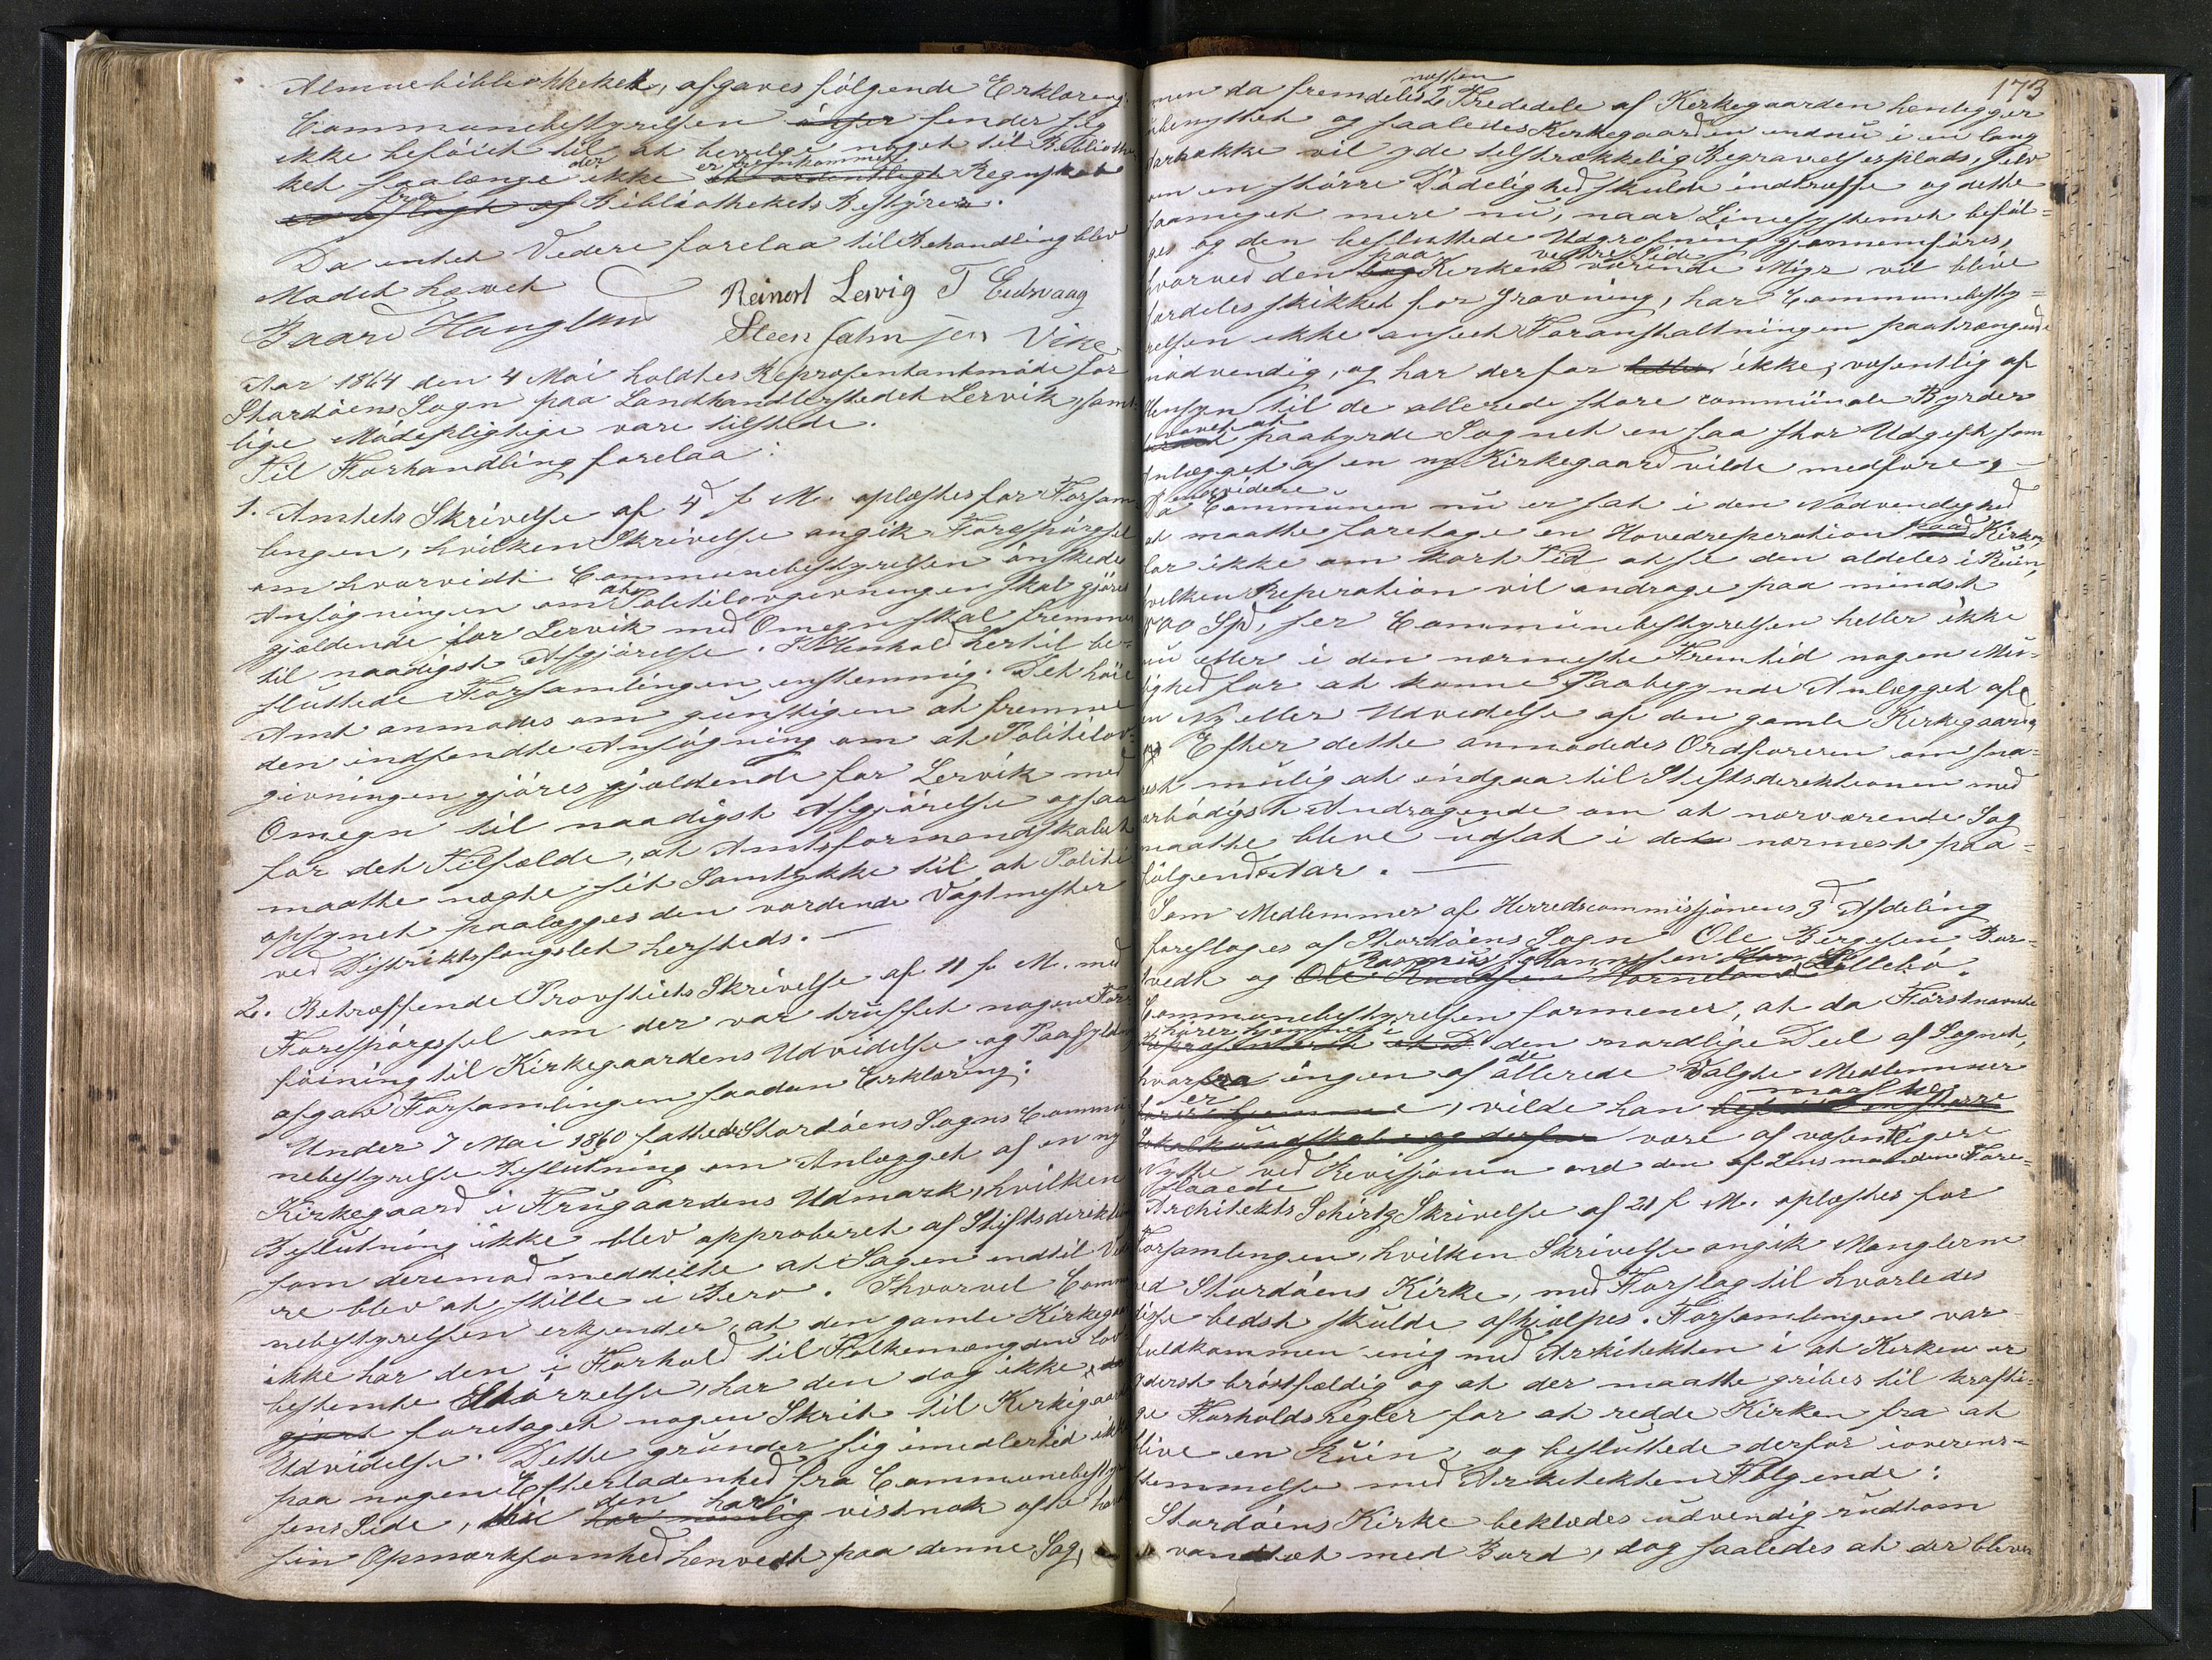 Almuebibliotheket, afgaves følgende Erklæring:
Communebestyrelsen finder sig
ikke beføiet til at bevilge noget til Bibliothe-
ket saalænge der ikke er fremkommet Regnskab
fra Bibliothekets Bestyrer.
Da intet Videre forelaa til Behandling blev
Mødet hævet
Reinert Lervig T Eidsvaag
Baard Haugland Steen Jahnsen Vike
Aar 1864 den 4 Mai holdtes Repræsentantmøde for
Stordøens Sogn paa Landhandlerstedet Lervik, samt-
lige Mødepligtige vare tilstede.
Til Forhandling forelaa:
1. Amtets Skrivelse af 4d f. M. oplæstes for Forsam-
lingen, hvilken Skrivelse angik Forespørgsel
om hvorvidt Communebestyrelsen ønskede
Ansøgningen om at Politilovgivningen skal gjøres
gjældende for Lervik med Omegn skal fremmes
til naadigst Afgjørelse. I Henhold hertil be-
sluttede Forsamlingen enstemmig: Det høie
Amt anmodes om gunstigen at fremme
den indsendte Ansøgning om at Politilov-
givningen gjøres gjældende for Lervik med
Omegn til naadigst Afgjørelse ogsaa
for det Tilfælde, at Amtsformandskabet
maatte nægte sit Samtykke til at Politi
opsynet paalægges den vordende Vagtmester
ved Distriktsfængslet hersteds. —
2. Betræffende Provstiets Skrivelse af 11 f. M. med
Forespørgsel om der var truffet nogen For-
føining til Kirkegaardens Udvidelse og Paafyldning
afgav Forsamlingen saadan Erklæring:
Under 7 Mai 1860 fattede Stordøens Sogns Commu-
nebestyrelse Beslutning om Anlægget af en ny
Kirkegaard i Frugaardens Udmark, hvilken
Beslutning ikke blev approberet af Stiftsdirektionen
som derimod meddelte at Sagen indtil Vide-
re blev at stille i Bero. Ihvorvel Commu-
nebestyrelsen erkjender, at den gamle Kirkegaard
ikke har den i Forhold til Folkemængden lov-
bestemte Størrelse, har den dog ikke
gjort foretaget nogen Skrit til Kirkegaardens
Udvidelse. Dette grunder sig imidlertid ikke
paa nogen Efterladenhed fra Communebestyrel-
sens Side, den har vistnok ofte havt
sin Opmærksomhed henvedt paa denne Sag,
173
men da fremdeles næsten 2 Trededele af Kirkegaarden henligger
ubenyttet og saaledes Kirkegaarden endnu i en lang
Aarrække vil yde tilstrækkelig Begravelsesplads, selv
om en større Dødelighed skulde indtræffe og dette
saameget mere nu, naar Liniesystemet beføl-
ges og den besluttede Udgrøfning gjennemføres,
hvorved den paa Kirkens vestre Side værende Myr vil blive
særdeles skikket for Gravning, har Communebesty-
relsen ikke anseet Foranstaltningen paatrængende
nødvendig, og har derfor ikke, væsentlig af
Hensyn til de allerede store communale Byrder
vovet at paabyrde Sognet en saa stor Udgift som
Anlægget af en ny Kirkegaard vilde medføre, —
Da endvidere Communen nu er sat i den Nødvendighed
at maatte foretage en Hovedreperation paa Kirken,
for ikke om kort Tid at se den aldeles i Ruin,
hvilken Reperation vil andrage paa mindst
Spd, ser Communebestyrelsen heller ikke
nu eller i den nærmeste Fremtid nogen Mu-
lighed for at kunne paabegynde Anlægget af
en Ny eller Udvidelse af den gamle Kirkegaard,
Efter dette anmodedes Ordføreren om sna-
rest mulig at indgaa til Stiftsdirektionen med
ærbødigst Andragende om at nærværende Sag
maatte blive udsat i de nærmest paa-
følgende Aar. —
Som Medlemmer af Herredscommissionens 3d Afdeling
foreslages af Stordøens Sogn Ole Børgesen Bor-
tvedt og Rasmus Hannssen Lillebø.
Communebestyrelsen formener, at da Førstnævnte
hører hjemme i den nordlige Deel af Sognet,
hvorfra ingen af de allerede valgte Medlemmer
er, vilde han maaskee
være af væsentligere
Nytte ved Revisjonen end den af Lensmanden Fore-
slaaede
Architekt Schirtz Skrivelse af 21 f. M. oplæstes for
Forsamlingen, hvilken Skrivelse angik Manglerne
ved Stordøens Kirke, med Forslag til hvorledes
disse bedst skulde afhjælpes. Forsamlingen var
fuldkommen enig med Arkitekten i at Kirken er
yderst brøstfældig og at der maatte gribes til krafti-
ge Forholdsregler for at redde Kirken fra at
blive en Ruin, og besluttede derfor i overens-
stemmelse med Arkitekten Følgende:
Stordøens Kirke beklædes udvendig rundtom
vandtæt med Bord, dog saaledes at der bliver